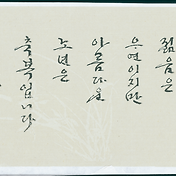 젊음은
우연이지만
아름다운
노년은
축복입니다